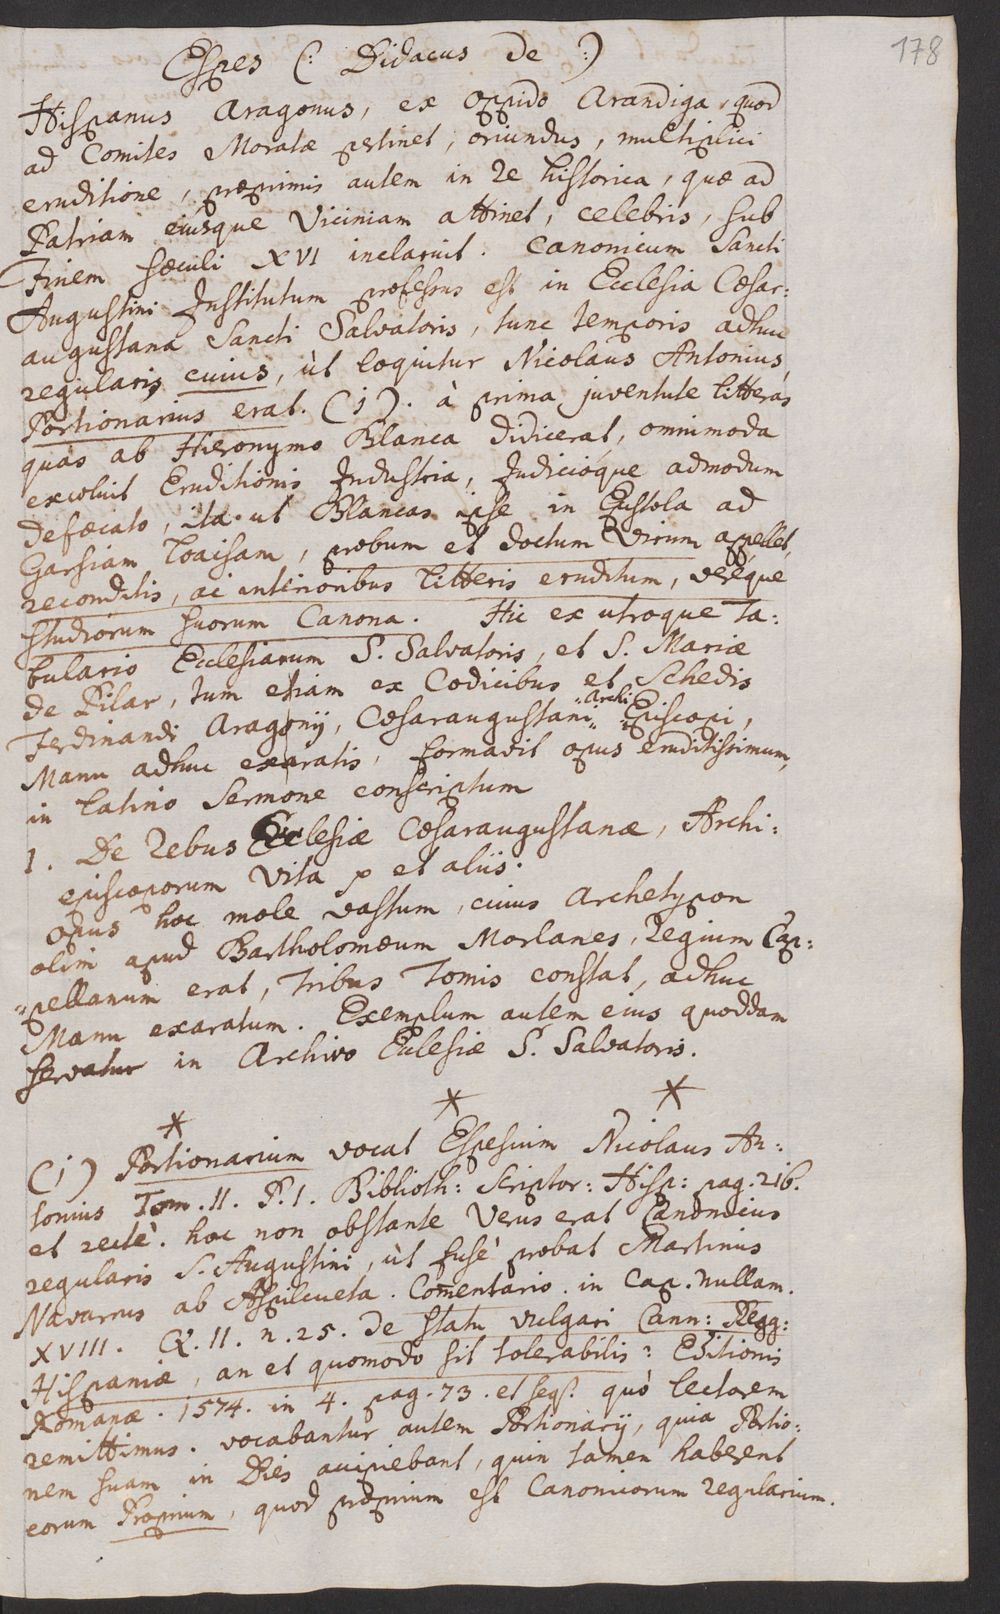 178
Espes (: Didacus de :)
Hispanus Aragonus, ex oppido Arandiga, quod
ad Comites Moratæ pertinet, oriundus, multiplici
eruditione, præprimis autem in re historica, quæ ad
Patriam eiusque Viciniam attinet, celebris, sub
Finem sæculi XVI inclaruit. Canonicum Sancti
Augustini Institutum professus est in Ecclesia Cæsar:
augustana Sancti Salvatoris, tunc temporis adhuc
regularis, cuius, ùt loquitur Nicolaus Antonius,
Portionarius erat. (1). à prima juventute litteras
quas ab Hieronymo Blanca didicerat, omnimoda
excoluit Eruditionis Industria, Judicioque admodum
defæcato, ita ut Blancas ipse in Epistola ad
Garsiam Loaisam, probum et doctum Virum appellet,
reconditis, ac interioribus litteris eruditum, veréque
studiorum suorum Canona. Hic ex utroque Ta:
bulario Ecclesiarum S. Salvatoris, et S. Mariæ
de Pilar, tum etiam ex Codicibus et Schedis
Ferdinandi Aragonij, Cæsaraugustani Archi Episcopi,
Manu adhuc exaratis, formavit opus eruditissimum,
in latino Sermone conscriptum
1. De Rebus Ecclesiæ Cæsaraugustanæ, Archi:
episcoporum Vita p et aliis.
opus hoc mole vastum, cuius Archetypon
olim apud Bartholomæum Morlanes, Regium Cap:
pellanum erat, Tribus Tomis constat, adhuc
Manu exaratum. Exemplum autem eius quoddam
servatur in Archivo Eclesiæ S. Salvatoris.
* * *
(1) Portionarium vocat Espesium Nicolaus An:
tonius Tom. II. P. 1. Biblioth: Scriptor: Hisp: pag. 216.
et rectè. hoc non obstante Verus erat Canonicus
regularis S. Augustini, ùt fusè probat Martinus
Navarrus ab Aspilcueta. Comentario. in Cap. nullam.
XVIII. Q. II. n. 25. De statu vulgari Cann: Regg:
Hispaniæ, an et quomodo sit tolerabilis? Editionis
Romanæ. 1574. in 4. pag. 73. et seqs. quò lectorem
remittimus. vocabantur autem Portionarij, quia Portio:
nem suam in Dies accipiebant, quin tamen haberent
eorum Proprium, quod proprium est Canonicorum regularium.